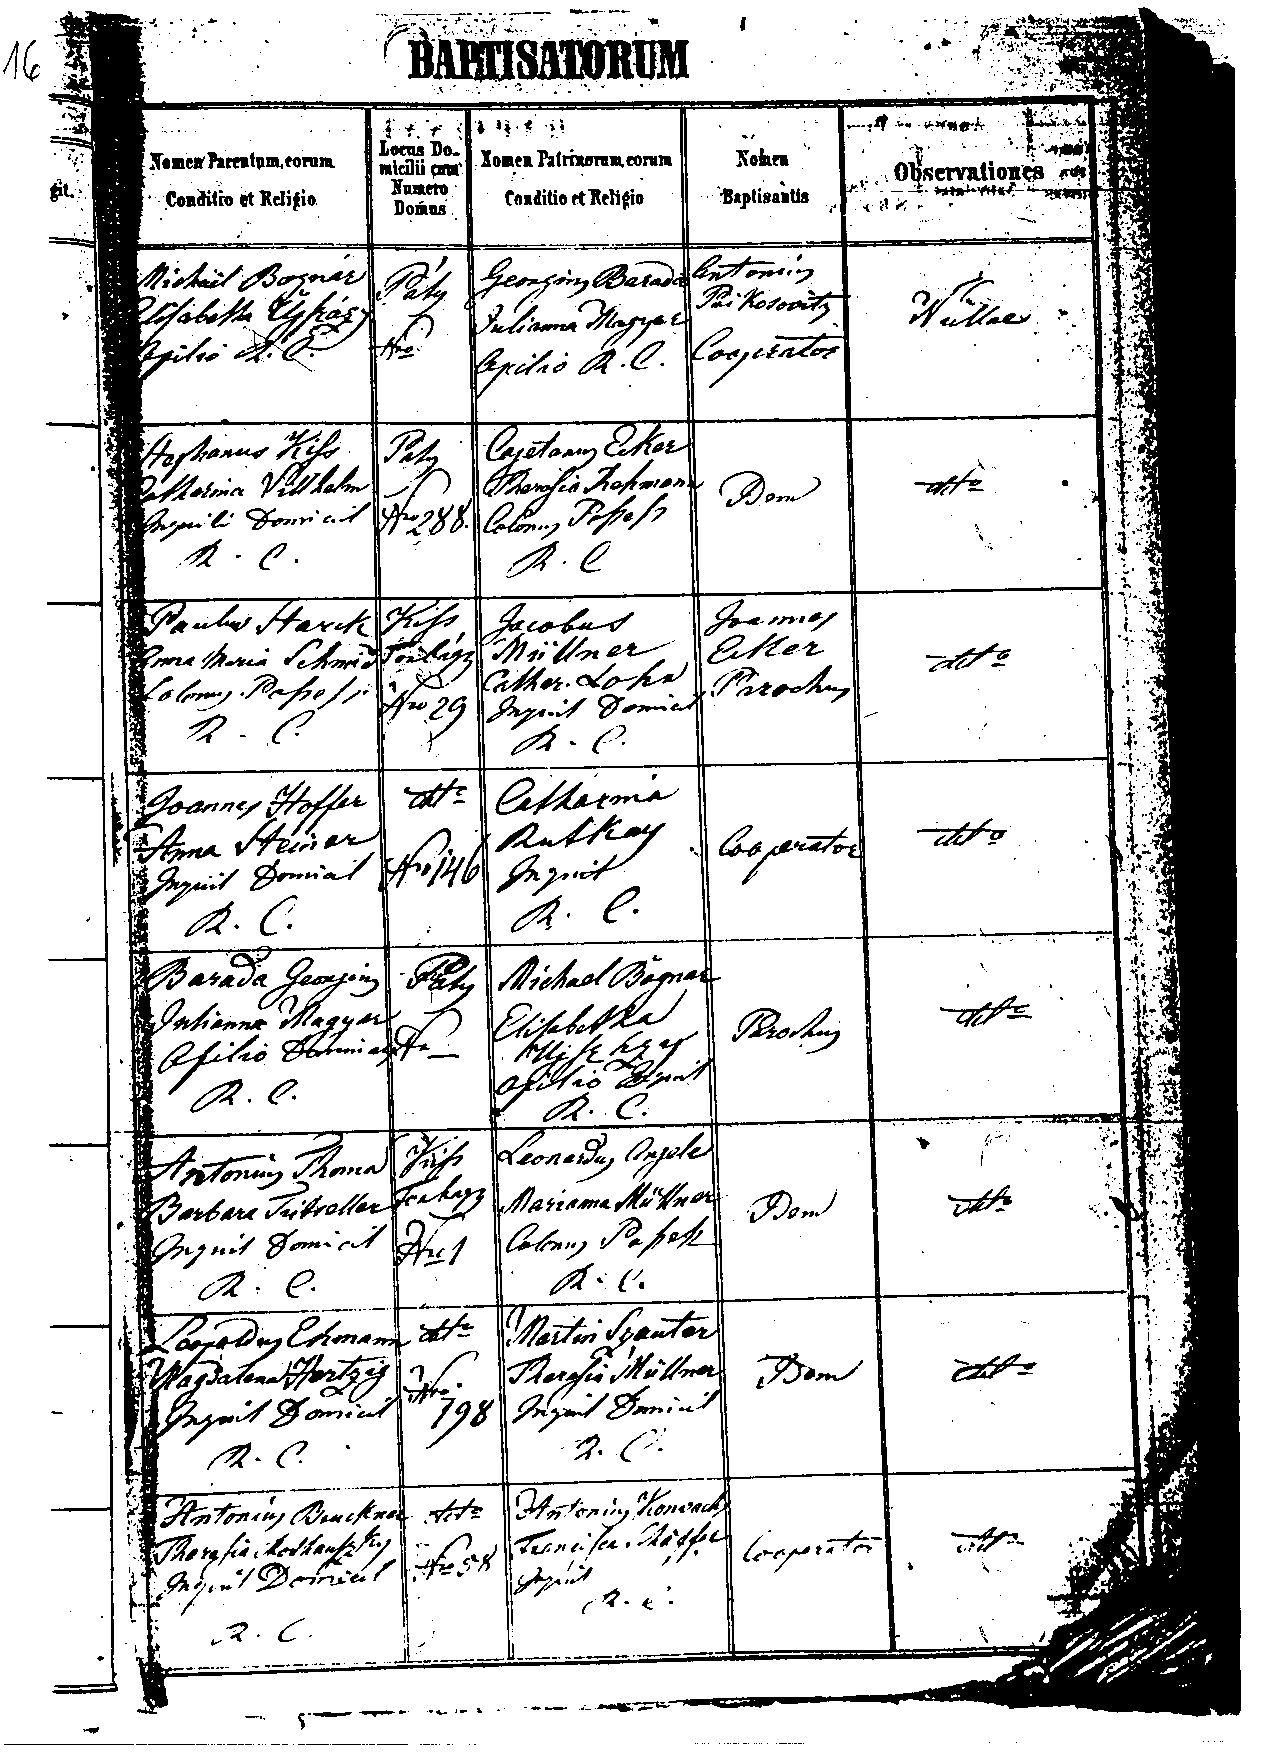 16
BAPTISATORUM
git.
Nomen Parentum, eorum
Conditio et Religio
Locus Do-
micilii cum
Numero
Domus
Nomen Patrinorum, eorum
Conditio et Religio
Nomen
Baptisantis
Observationes
Michaël Bognár
Elisabetha
Opilio R. C.
Páty
Nro
Georgius Barada
Julianna Magyar
Opilio R. C.
Antonius
Paikosovitz
Cooperator
Nullae
Stephanus Kiss
Catharina Vilthelm
Inquili Domicil
R. C.
Páty
Nro 288.
Cajetanus Ecker
Theresia Rehmann
Colonus Possess
R. C
Dem
dtto
Paulus Starck
Anna Maria Schmid
Colonus Possess
R. C.
Kiss
Torbágy
Nro 29
Jacobus
Müllner
Cather. Lohn
Inquil Domicil
R. C.
Joannes
Ecker
Parochus
dtto
Joannes Hoffer
Anna Steiner
Inquil Domicil
R. C.
dtto
Nro 146
Catharina
Rutkay
Inquil
R. C.
Cooperator
dtto
Barada Georgius
Julianna Magyar
Opilio
R. C.
Páty
Michael Bognar
Elisabetha
Opilio
R. C.
Parochus
dtto
Antonius Thoma
Barbara
Inquil Domicil
R. C.
Kiss
Torbagy
Nro 1
Leonardus Angele
Marianna Müllner
Colonus Possess
R. C.
Dem
dtto
Leopoldus Ekmann
Magdalena Hertzig
Inquil Domicil
R. C.
dtto
Nro.
198
Martin Szauter
Theresia Müllner
Inquil Domicil
R. C.
Dem
dtto
Antonius Bruckner
Theresia
Inquil Domicil
R. C.
dtto
Nro 58
Antonius
Francisca Schäffer
Inquil
R. C.
Cooperator
dtto